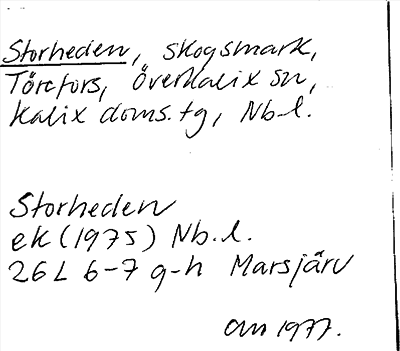 Storheden, skogsmark,
Törefors, Överkalix sn,
Kalix doms.tg, Nb.l.
Storheden
ek (1975) Nb.l.
26L 6-7 g-h Marsjärv
1977.